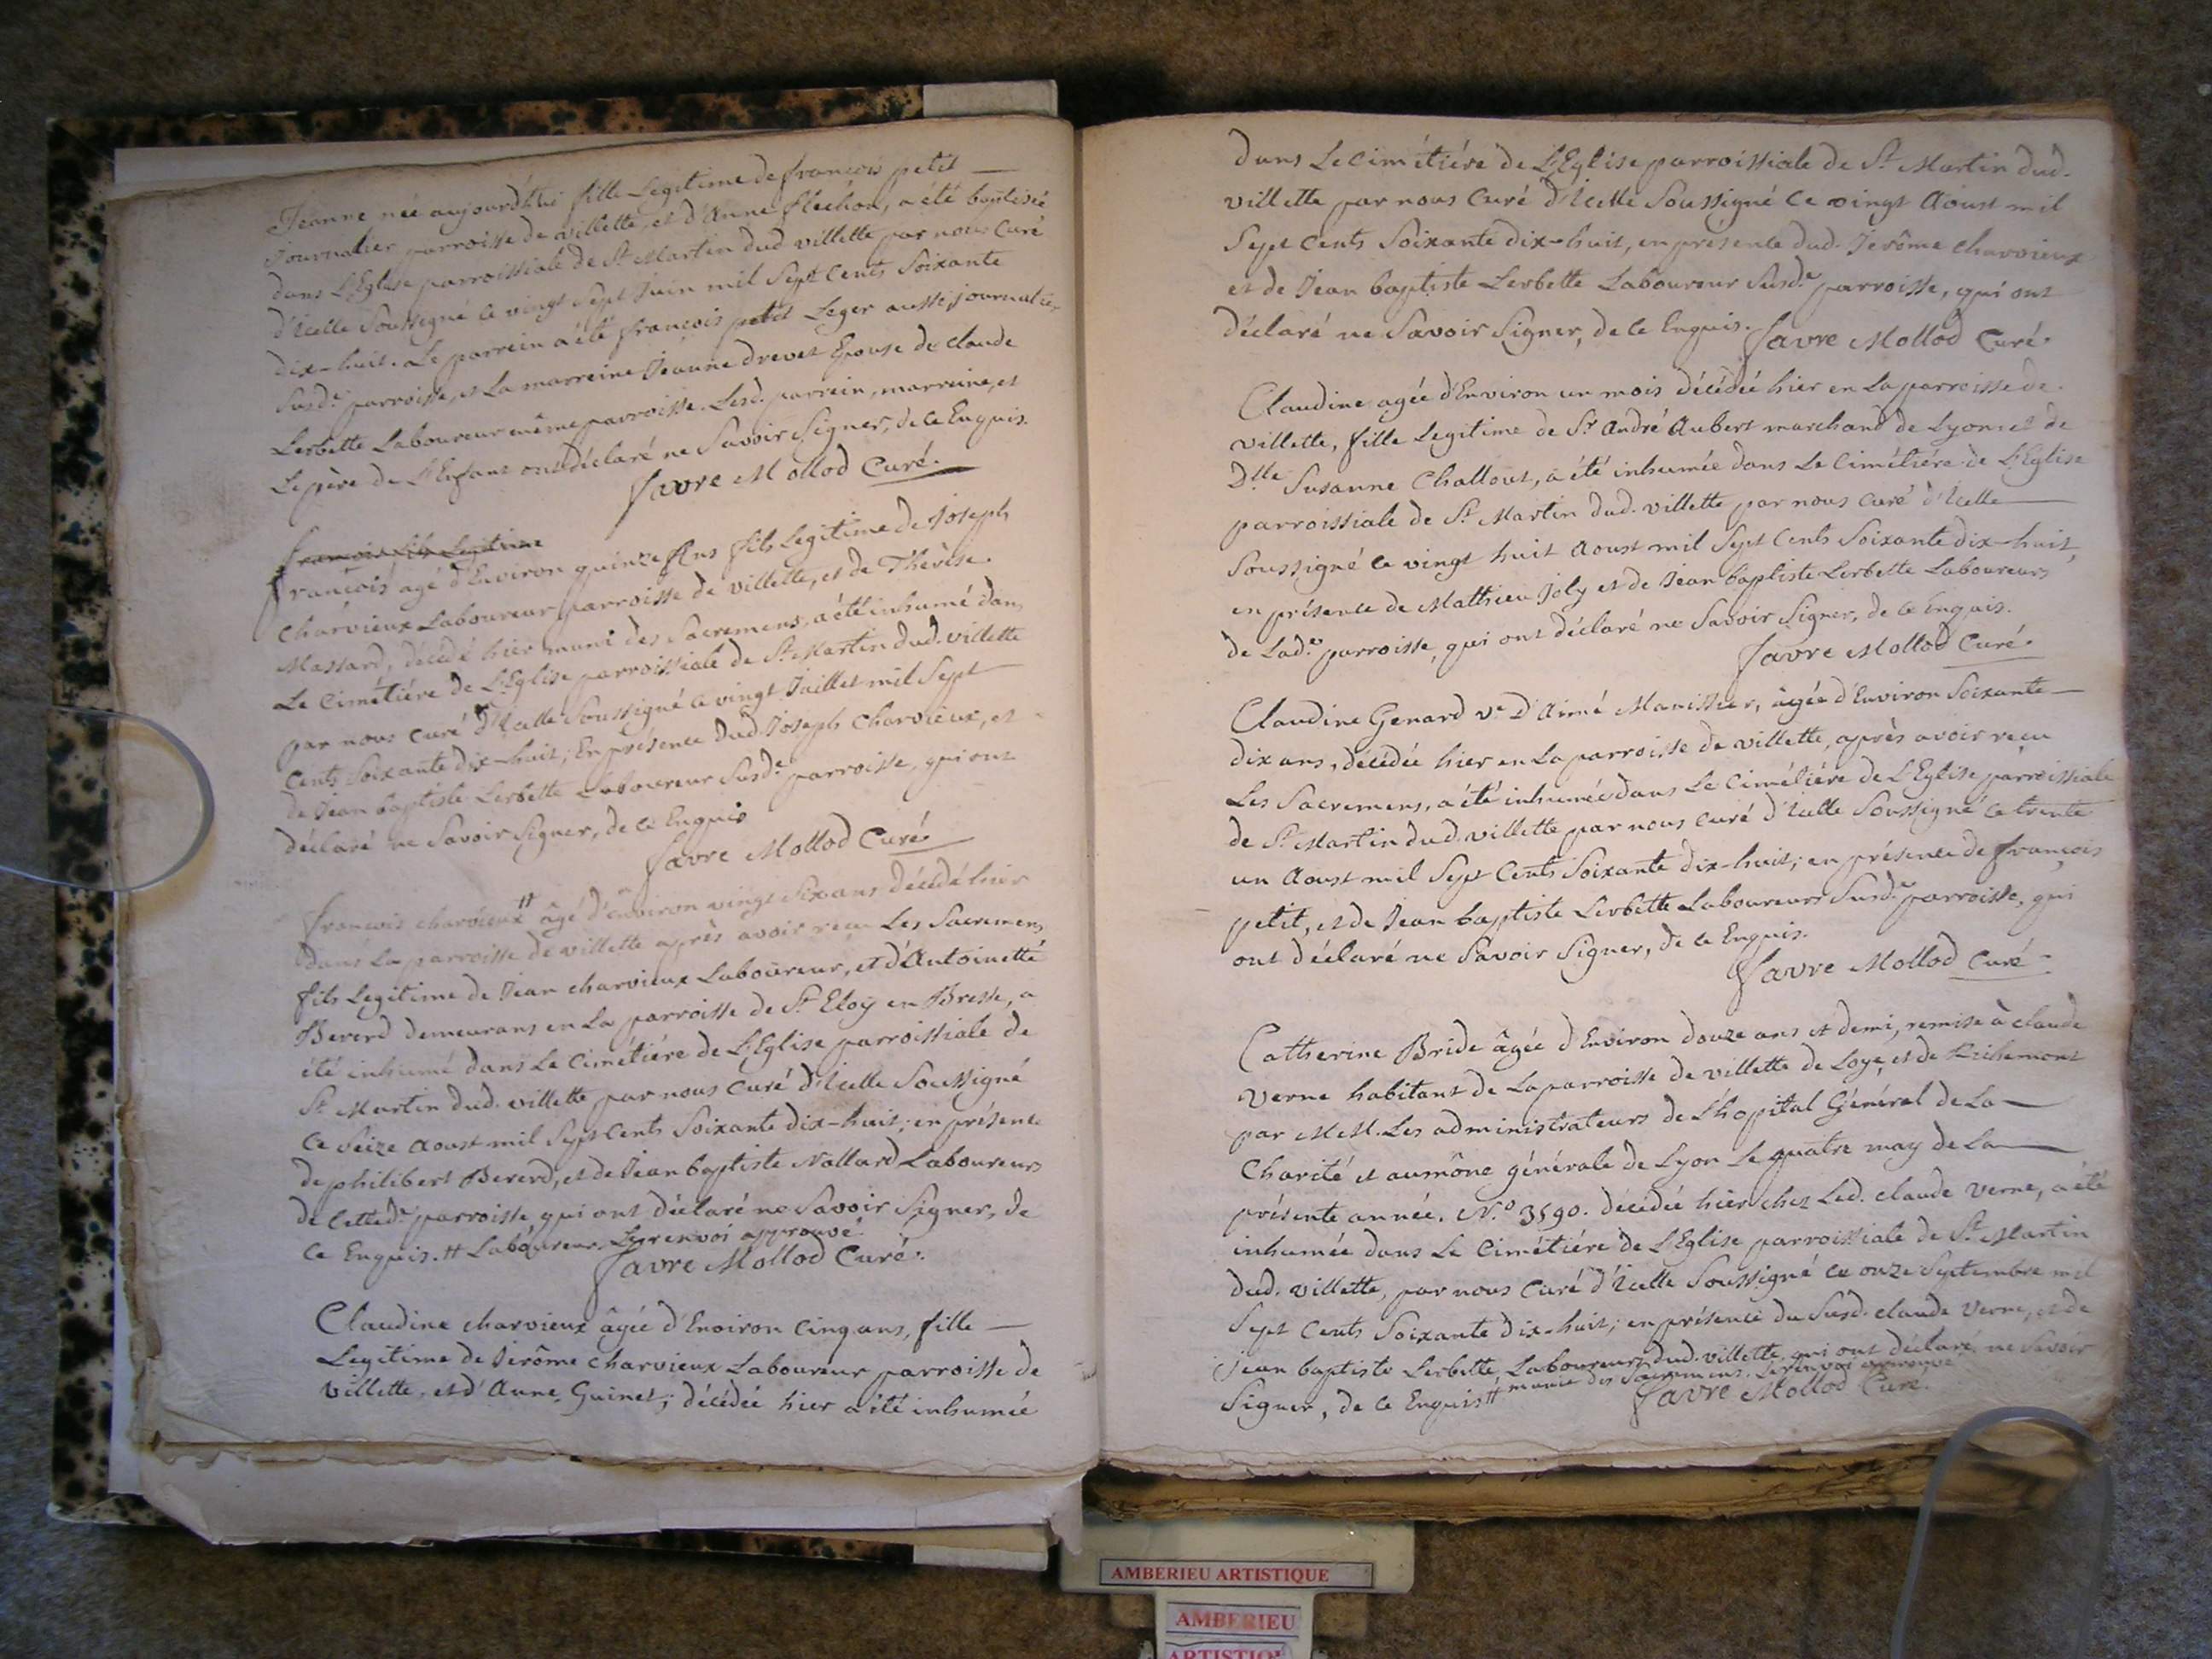 Jeanne née aujourd'hui fille Legitime de françois petit
journalier parroisse de villette, et d'Anne fléchon, a été baptisée
dans L'Eglise parroissiale de St. Martin dud villette par nous Curé
d'Icelle Soussigné Ce vingt Sept Juin mil Sept Cents Soixante
dix-huit. Le parrein a été françois petit Leger aussi journalier
Susde. parroisse, et La marreine Jeanne drevet Epouse de Claude
Lerbette Laboureur même parroisse. Lesd. parrein, marreine, et
Le père de L'Enfant ont déclaré ne Savoir Signer, de ce Enquis.
favre Mollod Curé.
françois fils Legitime
françois agé d'Environ quinze Ans fils Legitime de Joseph
Charvieux Laboureur parroisse de villette, et de Thérèse
Massard, décédé hier muni des Sacremens, a été inhumé dans
Le Cimétiére de L'Eglise parroissiale de St. Martin dud. villette
par nous Curé d'Icelle Soussigné Ce vingt Juillet mil Sept
Cents Soixante dix-huit; En présence dud. Joseph Charvieux, et
de Jean baptiste Lerbette Laboureur Susde. parroisse, qui ont
déclaré ne Savoir Signer, de ce Enquis
favre Mollod Curé
françois charvieux # âgé d'environ vingt Six ans décédé hier
dans La parroisse de villette après avoir reçu Les Sacremens
fils Legitime de Jean charvieux Laboureur, et d'Antoinette
Bererd demeurans en La parroisse de St. Eloy en Bresse, a
été inhumé dans Le Cimétiére de L'Eglise parroissiale de
St. Martin dud. villette par nous Curé d'Icelle Soussigné
Ce Seize Aoust mil Sept Cents Soixante dix-huit; en présence
de philibert Bererd, et de Jean baptiste Nallard Laboureurs
de Cettede. parroisse, qui ont déclaré ne Savoir Signer, de
Ce Enquis. # Laboureur. Le renvoi approuvé.
favre Mollod Curé.
Claudine charvieux âgée d'Environ Cinq ans, fille
Legitime de Jérôme charvieux Laboureur parroisse de
villette, et d'Anne Guinet; décédée hier a été inhumée
dans Le Cimétiére de L'Eglise parroissiale de St. Martin dud.
villette par nous Curé d'Icelle Soussigné Ce vingt Aoust mil
Sept Cents Soixante dix-huit, en présence dud. Jerôme charvieux
et de Jean baptiste Lerbette Laboureur Susde. parroisse, qui ont
déclaré ne Savoir Signer, de Ce Enquis. favre Mollod Curé.
Claudine agée d'Environ un mois décédée hier en La parroisse de
villette, fille Legitime de Sr. André Aubert marchand de Lyon et de
Dlle Susanne Challout, a été inhumée dans Le Cimétiére de L'Eglise
parroissiale de St. Martin dud. villette par nous Curé d'Icelle
Soussigné Ce vingt huit Aoust mil Sept Cents Soixante dix-huit,
en présence de Matthieu Joly et de Jean baptiste Lerbette Laboureurs
de Lade. parroisse, qui ont déclaré ne Savoir Signer, de Ce Enquis.
favre Mollod Curé.
Claudine Genard ve. D'Aimé Manissier, âgée d'Environ Soixante
dix ans, décédée hier en La parroisse de villette, après avoir reçu
Les Sacremens, a été inhumée dans Le Cimétiére de L'Eglise parroissiale
de St. Martin dud. villette par nous Curé d'Icelle Soussigné Ce trente
un Aoust mil Sept Cents Soixante dix-huit; en présence de françois
petit, et de Jean baptiste Lerbette Laboureurs Susde. parroisse, qui
ont déclaré ne Savoir Signer, de Ce Enquis.
favre Mollod Curé
Catherine Bride âgée d'Environ douze ans et demi, remise à Claude
Verne habitant de La parroisse de villette de Loye, et de Richemont
par MM. Les administrateurs de L'hopital Général de La
Charité et aumône générale de Lyon Le quatre may de La
présente année. N.o 3590. décédée hier chez Led. Claude Verne, a été
inhumée dans Le Cimétiére de L'Eglise parroissiale de St. Martin
dud. villette, par nous Curé d'Icelle Soussigné Ce onze Septembre mil
Sept Cents Soixante dix-huit; en présence du Susd. Claude Verne, et de
Jean baptiste Lerbette, Laboureurs dud. villette, qui ont déclaré ne Savoir
Signer, de Ce Enquis # munie des Sacremens. Le renvoi approuvé
favre Mollod Curé.
AMBERIEU ARTISTIQUE
AMBERIEU
ARTISTIQUE